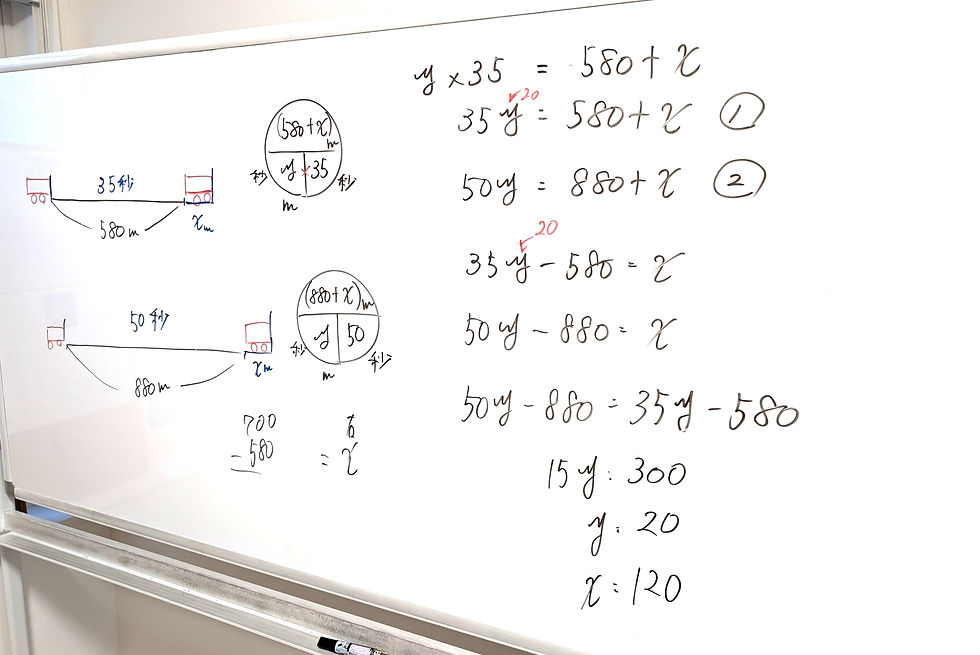 35秒
580m
xm
(580+x)m
y×35
秒 秒
m
50秒
880m
xm
(880+x)m
y 50
秒 秒
m
700
-580
= x
y×35 = 580+x
20
35y = 580+x ①
50y = 880+x ②
20
35y-580=x
50y-880=x
50y-880=35y-580
15y=300
y=20
x=120